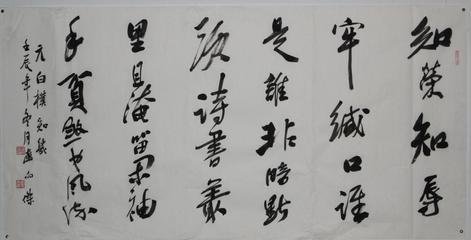 知榮知辱
牢緘口誰
是誰非暗點
頭詩書叢
里且淹留閑袖
手貧煞也風流
元白樸知幾
壬辰年冬月